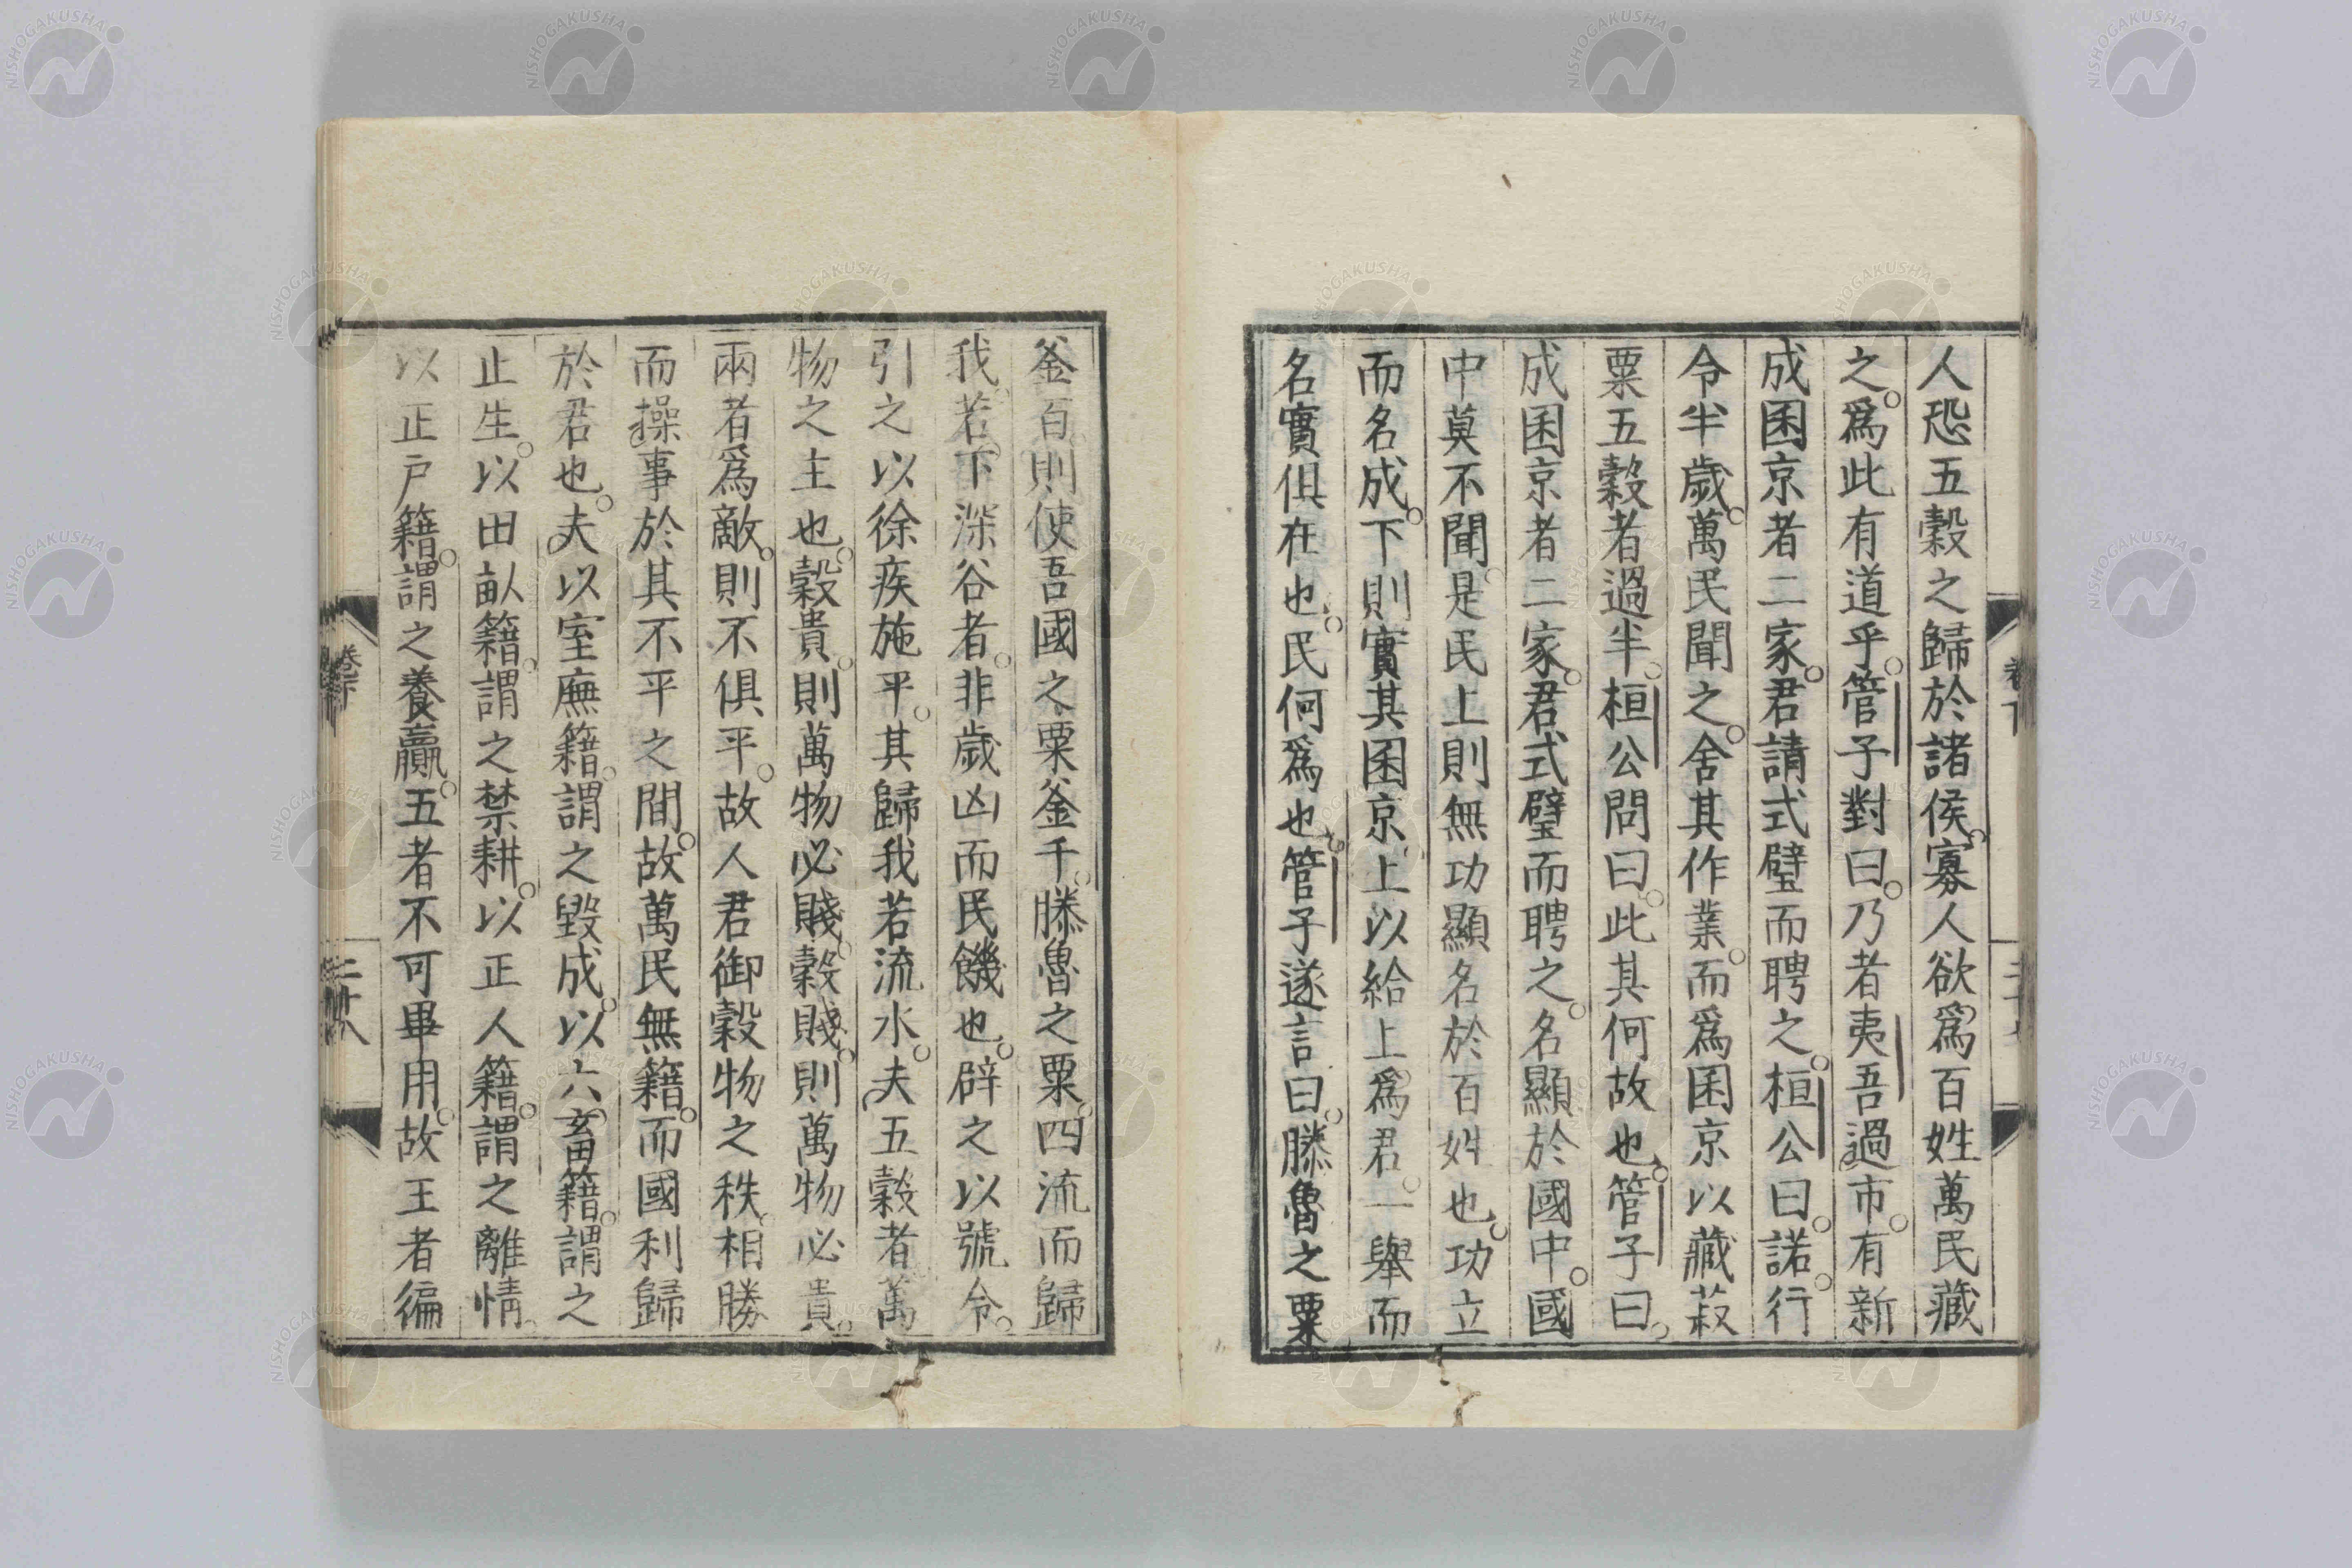 人恐五穀之歸於諸侯。寡人欲爲百姓萬民藏
之。爲此有道乎。管子對曰。乃者夷吾過市。有新
成囷京者二家。君請式璧而聘之。桓公曰。諾。行
令半歲。萬民聞之。舍其作業。而爲囷京以藏菽
粟五穀者過半。桓公問曰。此其何故也。管子曰。
成囷京者二家。君式璧而聘之。名顯於國中。國
中莫不聞。是民上則無功顯名於百姓也。功立
而名成。下則實其囷京。上以給上爲君。一舉而
名實俱在也。民何爲也。管子遂言曰。滕魯之粟
釜百。則使吾國之粟釜千。滕魯之粟。四流而歸
我若下深谷者。非歲凶而民饑也。辟之以號令。
引之以徐疾施平。其歸我若流水。夫五穀者萬
物之主也。穀貴。則萬物必賤。穀賤。則萬物必貴。
兩者爲敵。則不俱平。故人君御穀物之秩。相勝
而操事於其不平之間。故萬民無籍。而國利歸
於君也。夫以室廡籍。謂之毀成。以六畜籍。謂之
止生。以田畝籍。謂之禁耕。以正人籍。謂之離情。
以正戶籍。謂之養贏。五者不可畢用。故王者徧
卷下
NISHOGAKUSHA